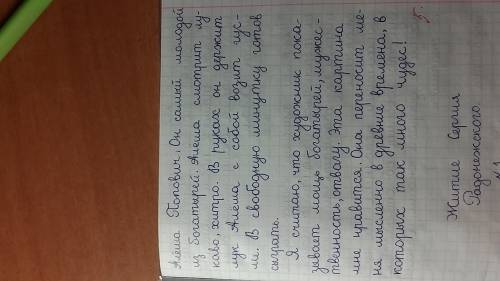 Алёша Попович. Он самый молодой
из богатырей. Алеша смотрит лу-
каво, хитро. В руках он держит
лук. Алеша с собой возит гус-
ли. В свободную минутку готов
сыграть.
Я считаю, что художник пока-
зывает мощь богатырей, мужес-
твенность, отвагу. Эта картина
мне нравится. Она переносит ме-
ня мысленно в древние времена, в
которых так много чудес!
5.
Житие Сергия
Радонежского
№1